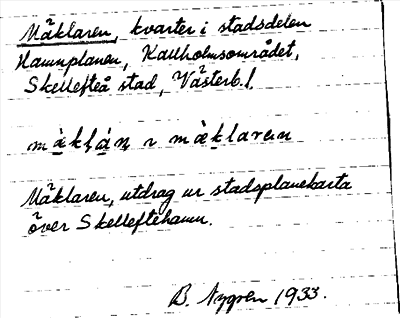 Mäklaren, kvarter i stadsdelen
Hamnplanen, Kallholmsområdet,
Skellefteå stad, Västerb. l.
mäklaren
Mäklaren, utdrag ur stadsplanekarta
över Skelleftehamn.
B. Nygren 1933.